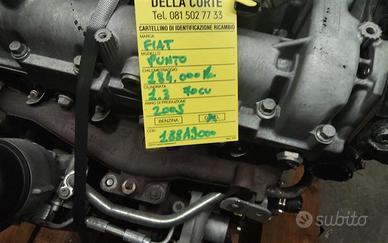 DELLA CORTE
Tel. 081 502 77 33
CARTELLINO DI IDENTIFICAZIONE RICAMBIO
MARCA
FIAT
MODELLO
PUNTO
CHILOMETRAGGIO
184.000 K
CILINDRATA
1.3 70CV
ANNO DI PRODUZIONE
2005
BENZINA
COD.
188A9000
subito